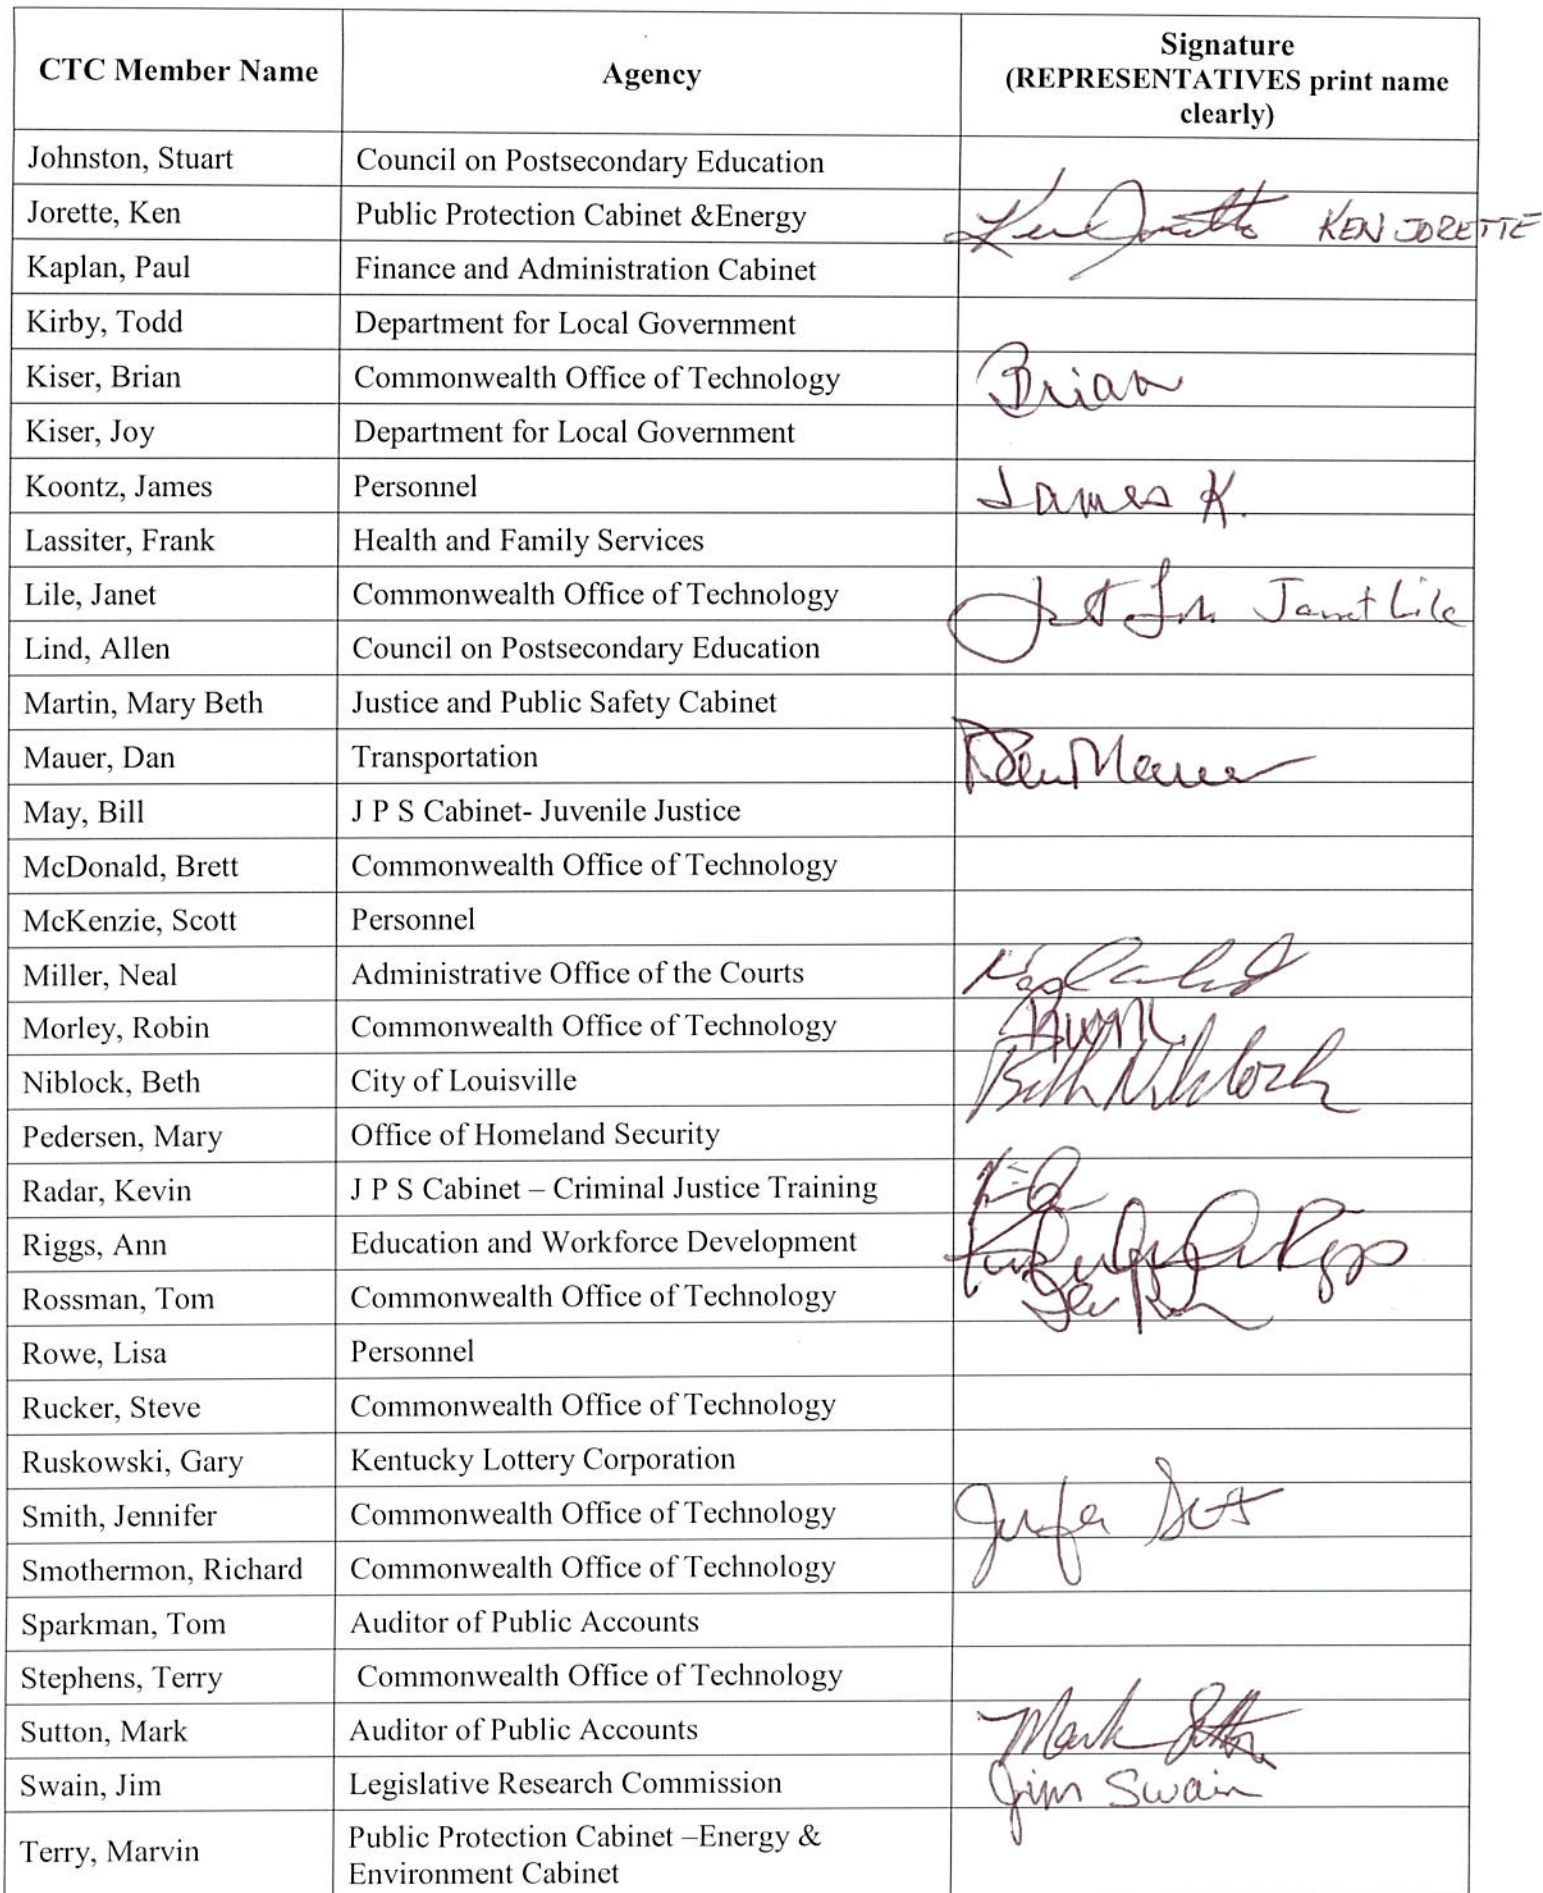 CTC Member Name Agency Signature
(REPRESENTATIVES print name
clearly)
Johnston, Stuart Council on Postsecondary Education
Jorette, Ken Public Protection Cabinet &Energy Ken Jorette KEN JORETTE
Kaplan, Paul Finance and Administration Cabinet
Kirby, Todd Department for Local Government
Kiser, Brian Commonwealth Office of Technology Brian
Kiser, Joy Department for Local Government
Koontz, James Personnel James K.
Lassiter, Frank Health and Family Services
Lile, Janet Commonwealth Office of Technology Janet Lile
Lind, Allen Council on Postsecondary Education
Martin, Mary Beth Justice and Public Safety Cabinet
Mauer, Dan Transportation Dan Mauer
May, Bill J P S Cabinet- Juvenile Justice
McDonald, Brett Commonwealth Office of Technology
McKenzie, Scott Personnel
Miller, Neal Administrative Office of the Courts
Morley, Robin Commonwealth Office of Technology
Niblock, Beth City of Louisville Beth Niblock
Pedersen, Mary Office of Homeland Security
Radar, Kevin J P S Cabinet – Criminal Justice Training
Riggs, Ann Education and Workforce Development
Rossman, Tom Commonwealth Office of Technology
Rowe, Lisa Personnel
Rucker, Steve Commonwealth Office of Technology
Ruskowski, Gary Kentucky Lottery Corporation
Smith, Jennifer Commonwealth Office of Technology
Smothermon, Richard Commonwealth Office of Technology
Sparkman, Tom Auditor of Public Accounts
Stephens, Terry Commonwealth Office of Technology
Sutton, Mark Auditor of Public Accounts Mark Sutton
Swain, Jim Legislative Research Commission Jim Swain
Terry, Marvin Public Protection Cabinet –Energy &
Environment Cabinet